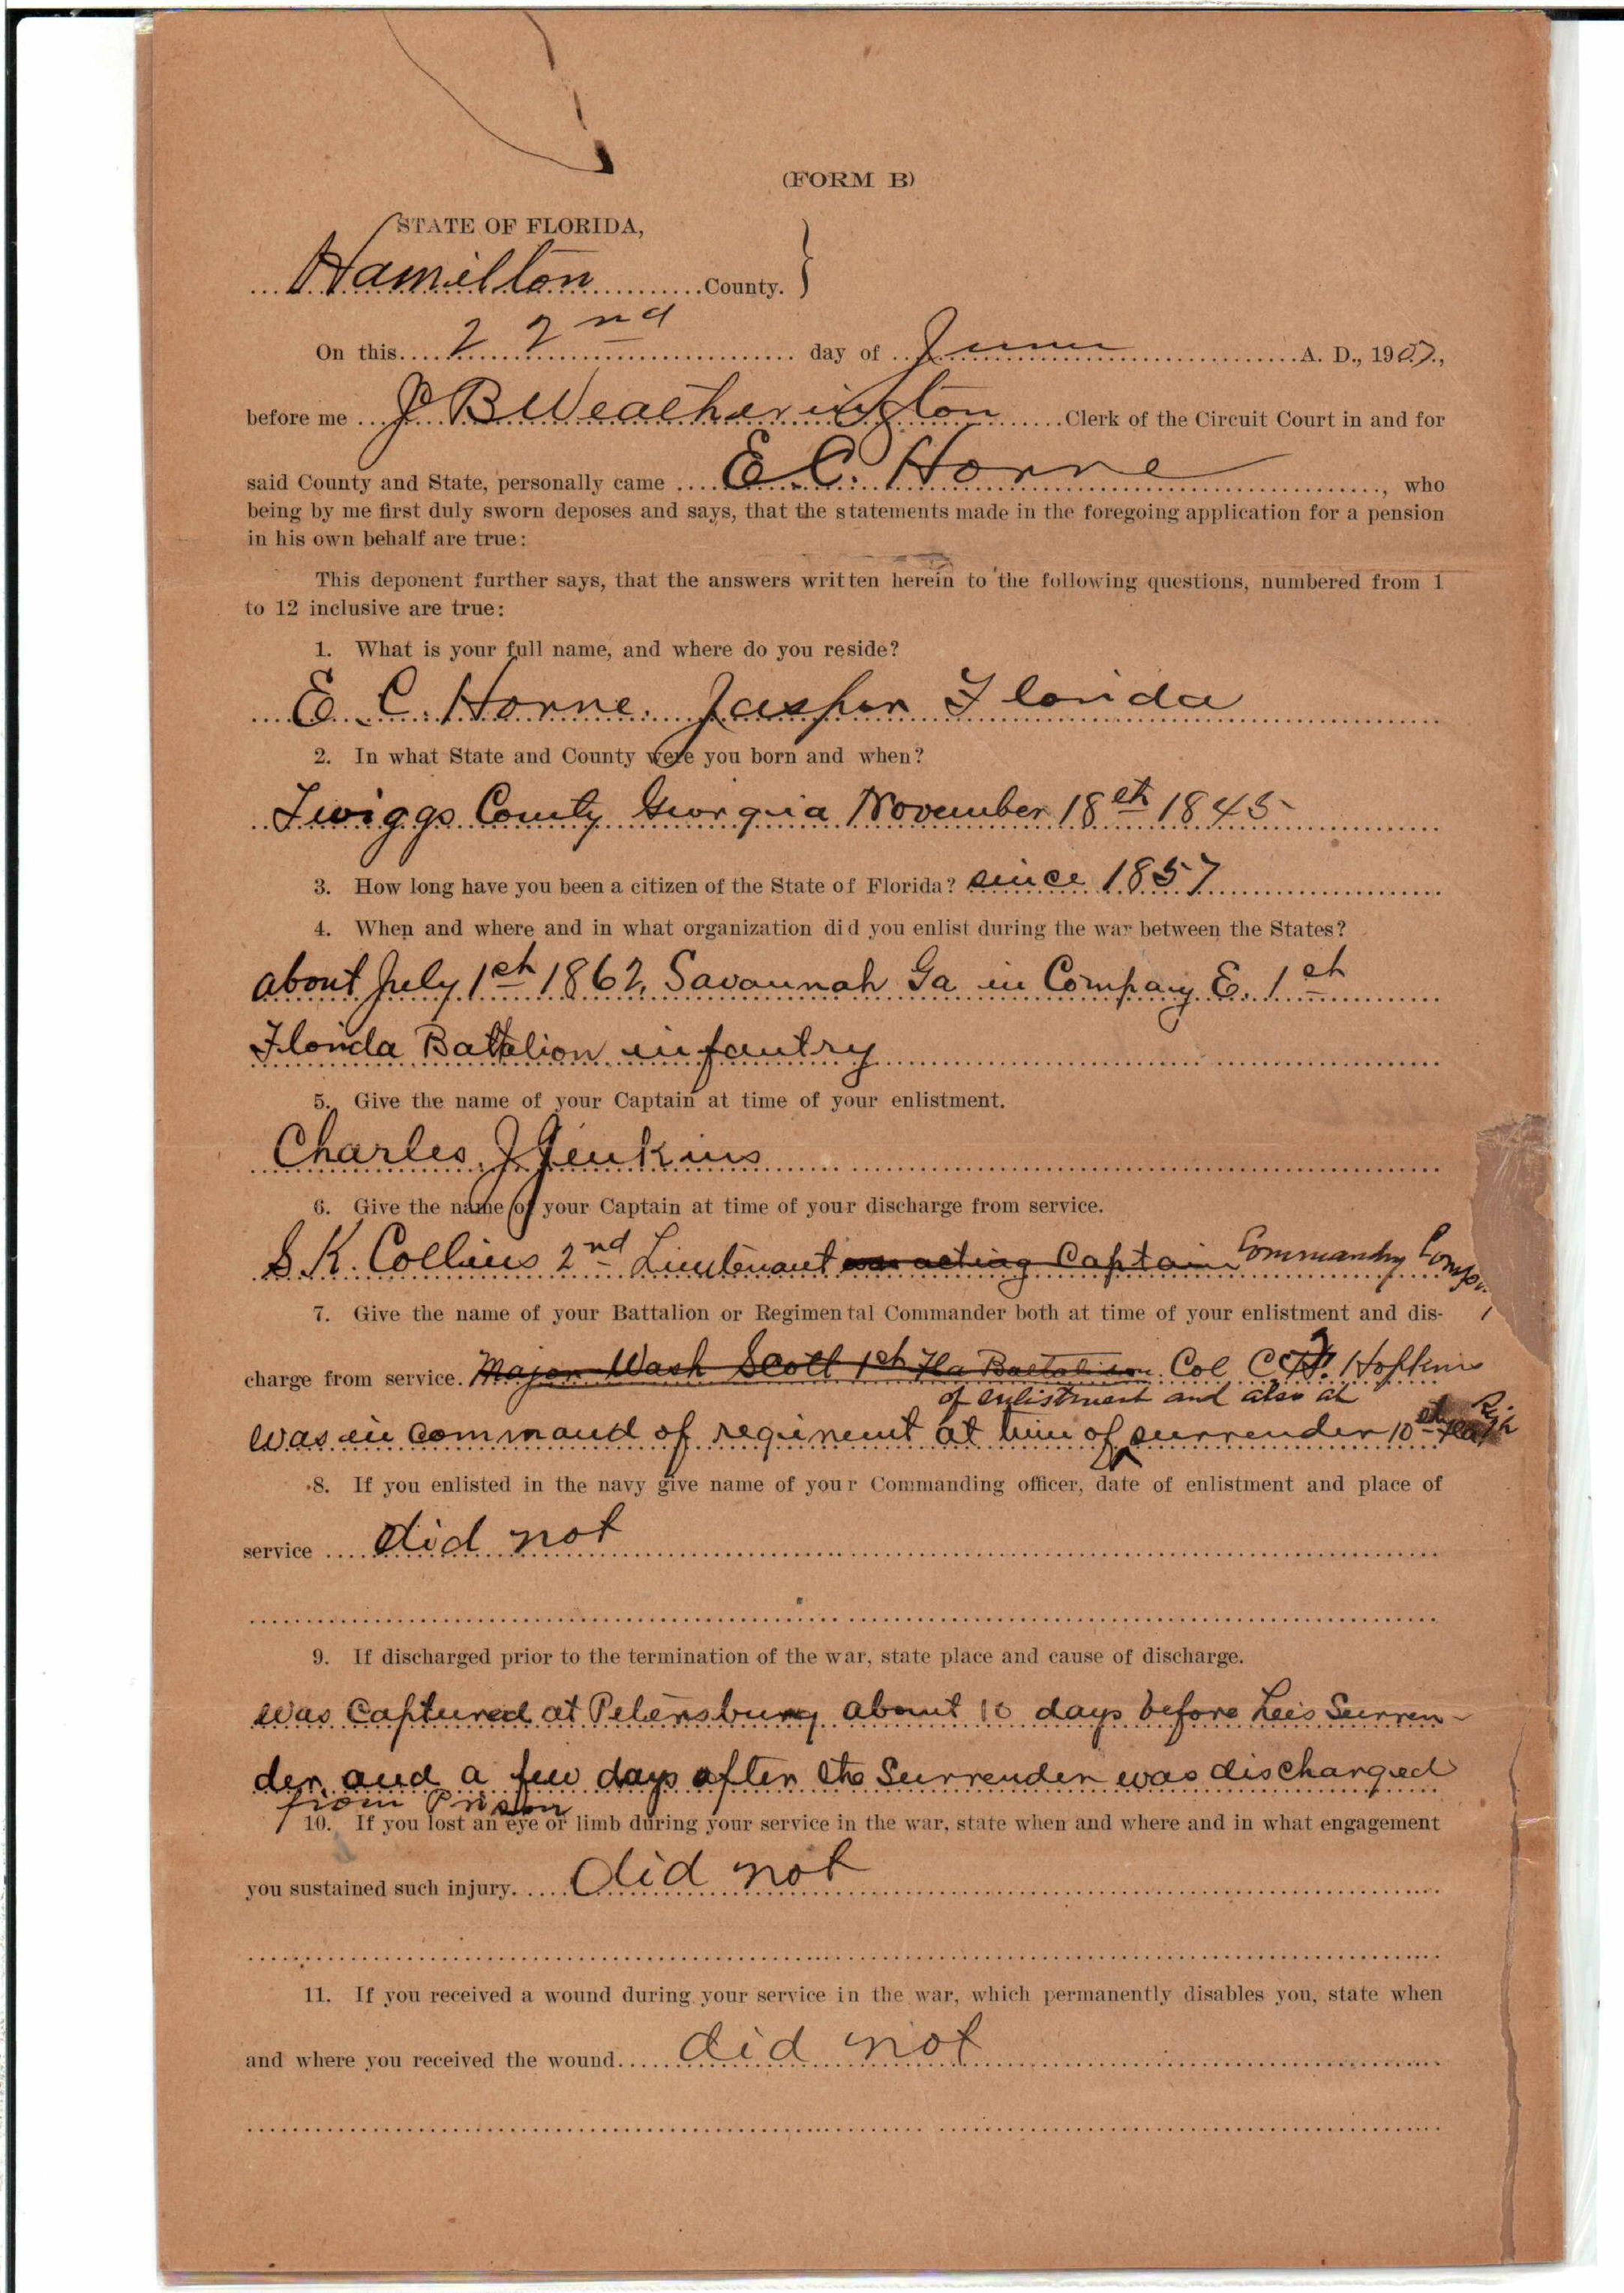 (FORM B)
STATE OF FLORIDA,
Hamilton County.
On this 22nd day of June A. D., 1907,
before me J B Weatherington Clerk of the Circuit Court in and for
said County and State, personally came E. C. Horne, who
being by me first duly sworn deposes and says, that the statements made in the foregoing application for a pension
in his own behalf are true:
This deponent further says, that the answers written herein to the following questions, numbered from 1
to 12 inclusive are true:
1. What is your full name, and where do you reside?
E. C. Horne. Jasper Florida
2. In what State and County were you born and when?
Twiggs County Georgia November 18th 1845
3. How long have you been a citizen of the State of Florida? since 1857
4. When and where and in what organization did you enlist during the war between the States?
about July 1st 1862, Savannah Ga in Company E. 1st
Florida Battalion infantry
5. Give the name of your Captain at time of your enlistment.
Charles J Jenkins
6. Give the name of your Captain at time of your discharge from service.
S. K. Collins 2nd Lieutenant was acting Captain Commandng
7. Give the name of your Battalion or Regimental Commander both at time of your enlistment and dis-
charge from service. Major Wash Scott 1st Fla Battalion Col C. F. Hopkins
of enlistment and also at
was in command of regiment at time of surrender 10th
8. If you enlisted in the navy give name of your Commanding officer, date of enlistment and place of
service did not
9. If discharged prior to the termination of the war, state place and cause of discharge.
was Captured at Petersburg about 10 days before Lees Surren-
der and a few days after the Surrender was discharged
from Prison
10. If you lost an eye or limb during your service in the war, state when and where and in what engagement
you sustained such injury. did not
11. If you received a wound during your service in the war, which permanently disables you, state when
and where you received the wound did not